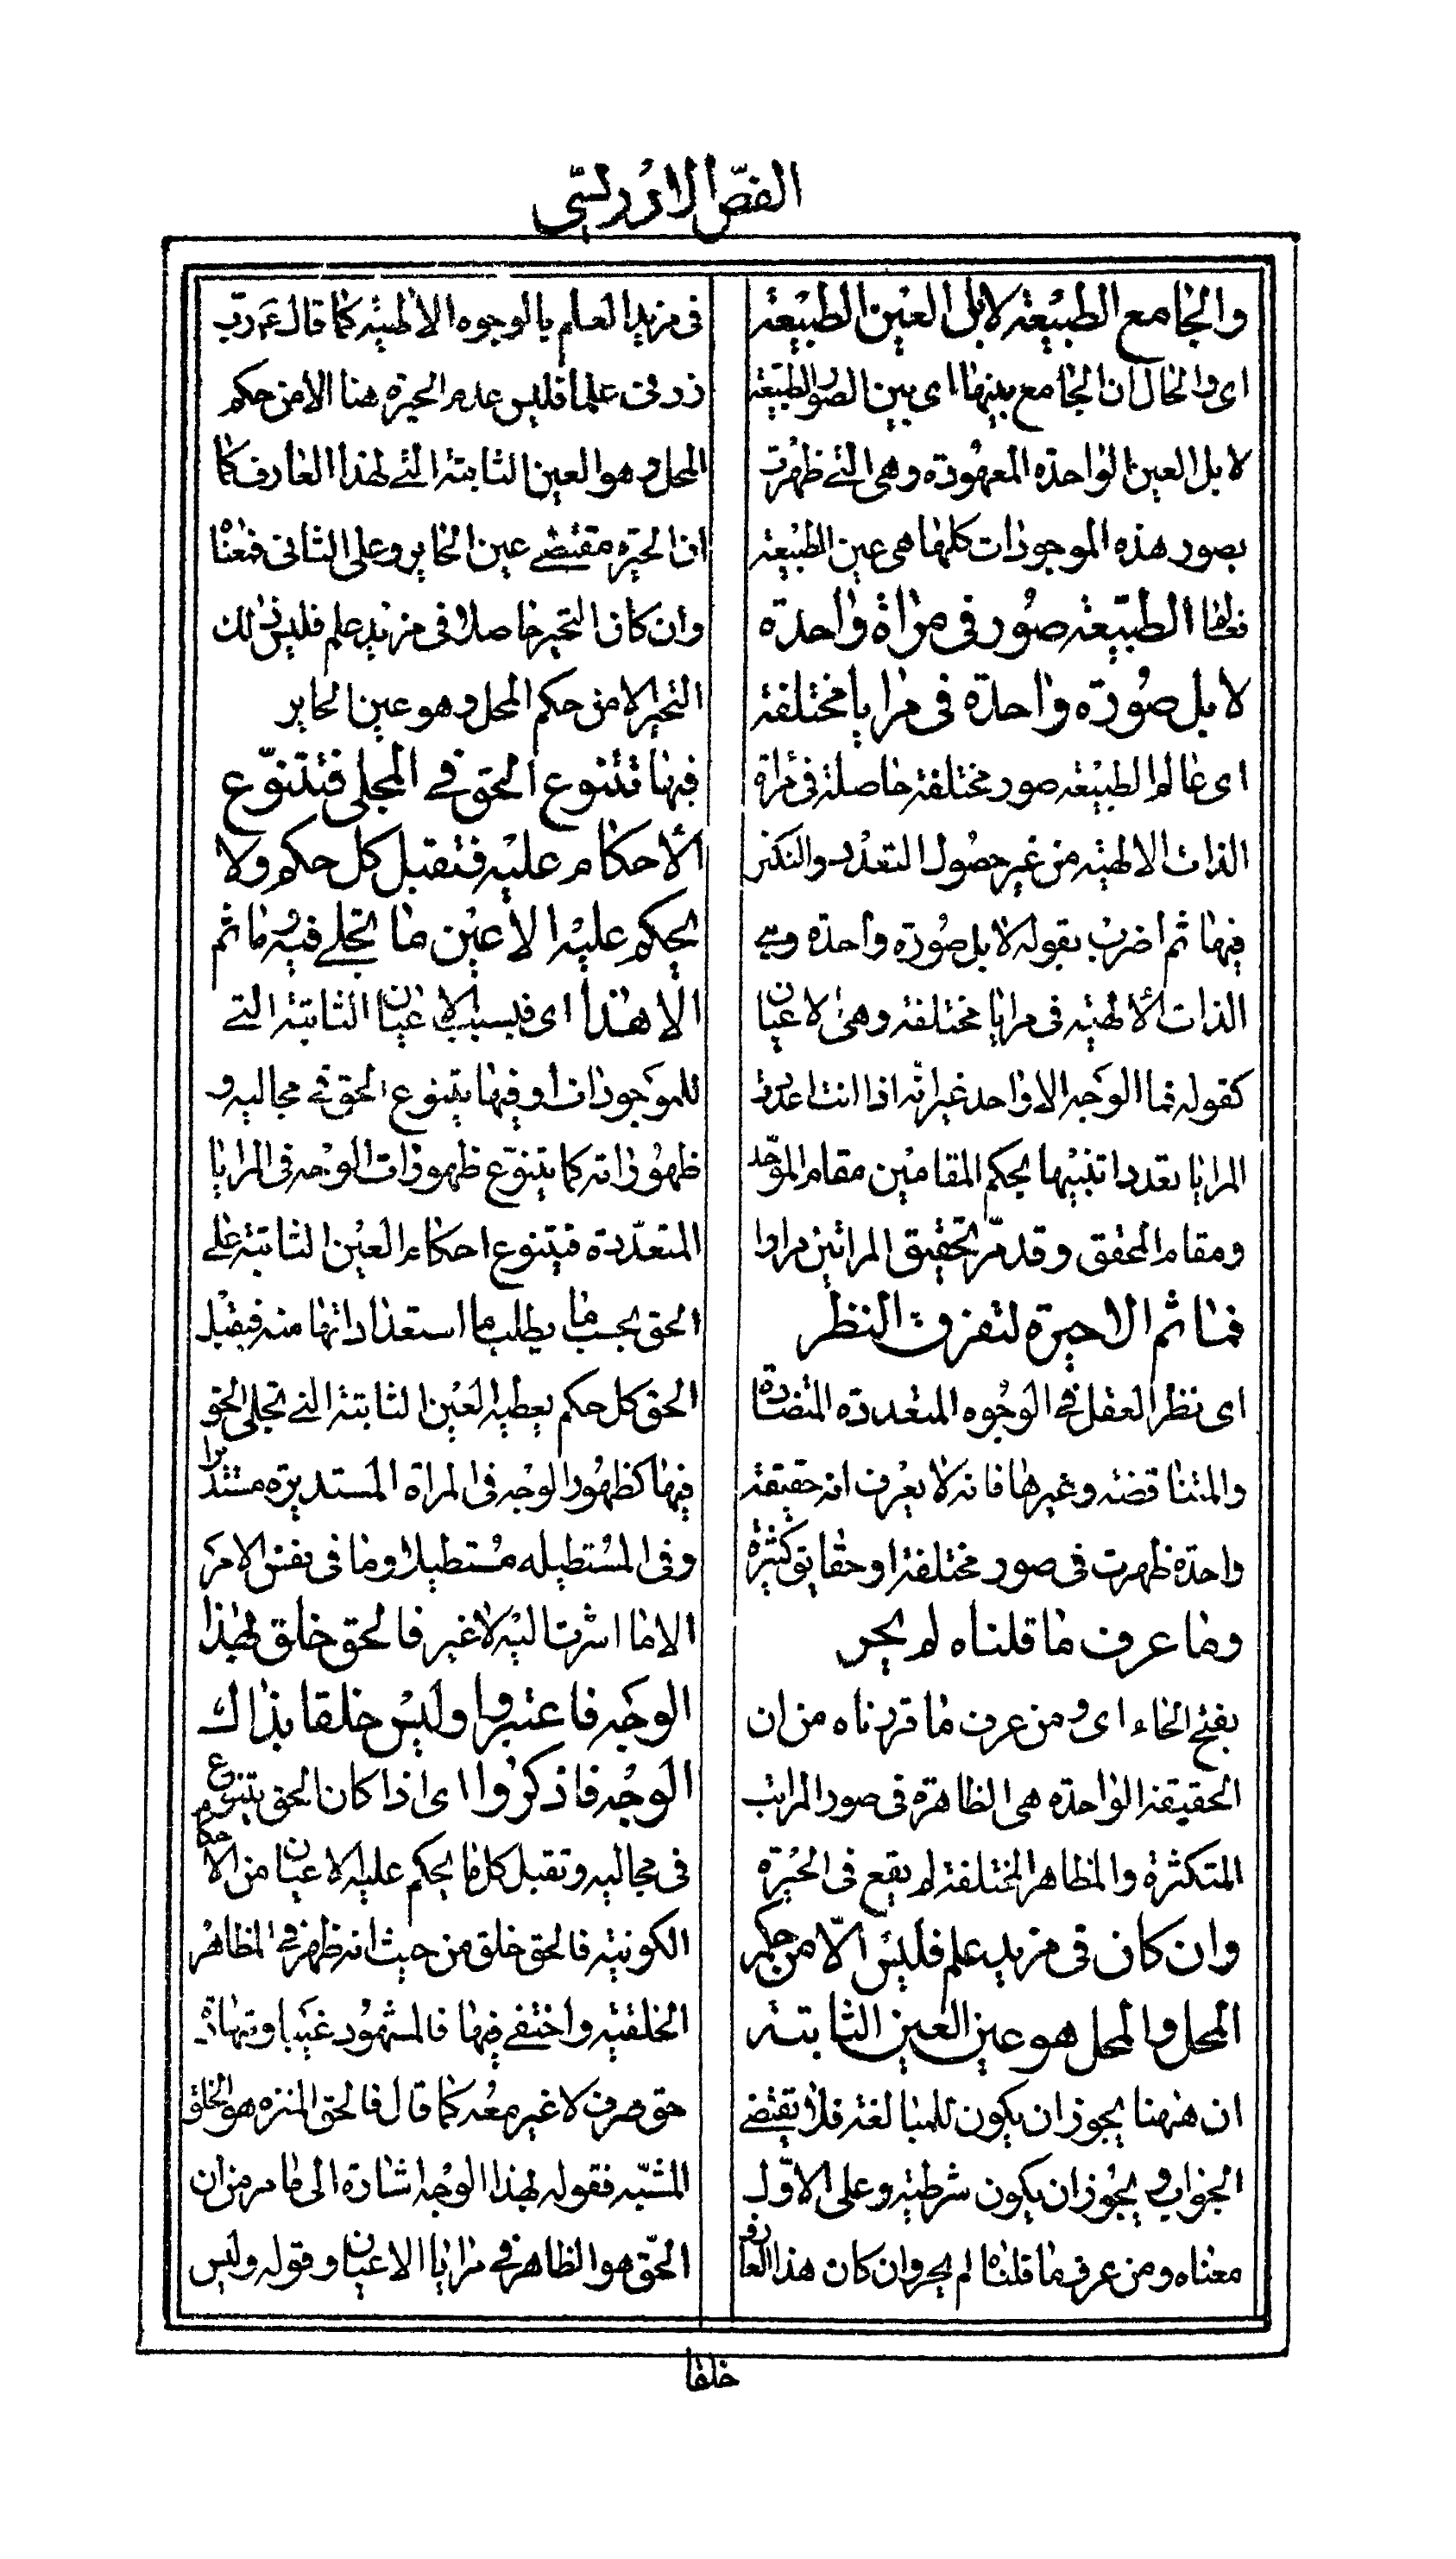 الفصّ الادريسي
والجامع الطبيعة لا بل العين الطبيعة
اى والحال ان الجامع بينها اى بين الصور الطبيعة
لا بل العين الواحدة المعهودة وهى التے ظهرت
بصور هذه الموجودات كلها هى عين الطبيعة
فعالم الطبيعة صور فى مراة واحدة
لا بل صورة واحدة فى مرايا مختلفة
اى عالم الطبيعة صور مختلفة حاصلة فى مراة
الذات الالهية من غير حصول التعدد والتكثر
فيها ثم اضرب بقوله لا بل صورة واحدة وهے
الذات الالهية فى مرايا مختلفة وهى الاعيان
كقوله فما الوجه الا واحد غير انه اذا انت اعددت
المرايا تعددا تنبيها بحكم المقامين مقام الموحد
ومقام المحقق وقد مرّ تحقيق المراتين مرارا
فما ثم الا حيرة لتفرق النظر
اى نظر العقل فے الوجوه المتعددة المتضادة
والمتناقضة وغيرها فانه لا يعرف انه حقيقة
واحدة ظهرت فى صور مختلفة او حقايق كثيرة
ومن عرف ما قلناه لم يحر
بفتح الحاء اى ومن عرف ما قررناه من ان
الحقيقة الواحدة هى الظاهرة فى صور المراتب
المتكثرة والمظاهر المختلفة لم يقع فى الحيرة
وان كان فى مزيد علم فليس الّا من حكم
المحل والمحل هو عين العين الثابتة
ان ههنا يجوز ان يكون للمبالغة فلا يقتضے
الجواب ويجوز ان يكون شرطية وعلى الاوّل
معناه ومن عرف ما قلناه لم يحر وان كان هذا العارف
فى مزيد العلم بالوجوه الالهية كما قال عم رب
زدنى علما فليس عدم الحيرة هنا الا من حكم
المحل وهو العين الثابتة التے لهذا العارف كما
ان الحيرة مقتضے عين الحاير وعلى الثانى فمعناه
وان كان التحير حاصلا فى مزيد علم فليس ذلك
التحير الا من حكم المحل وهو عين الحاير
فبها تتنوع الحق فے المجلى فتتنوّع
الاحكام عليه فتقبل كل حكم ولا
يحكم عليه الا عين ما تجلے فيه وما ثم
الا هذا اى فبسبب الاعيان الثابتة التے
للموجودات او فيها يتنوع الحق فے مجاليه و
ظهوراته كما يتنوّع ظهورات الوجه فى المرايا
المتعدّدة فيتنوع احكام العين الثابتة علے
الحق بحسب ما يطلب ما استعداداتها منه فيقبل
الحق كل حكم يعطيه العين الثابتة التے تجلى الحق
فيها كظهور الوجه فى المراة المستديرة مستديرا
وفى المستطيله مستطيلا وما فى نفس الامر
الا ما اشرت اليه لا غير فالحق خلق بهذا
الوجه فاعتبروا وليس خلقا بذاك
الوجه فاذكروا اى اذا كان الحق يتنوع
فى مجاليه وتقبل كل ما يحكم عليه الاعيان من الاحكام
الكونية فالحق خلق من حيث انه ظهر فے المظاهر
الخلقية واختفے فيها فالمشهود غيبا وشهادة
حق صرف لا غير معه كما قال فالحق المنزه هو الخلق
المشبّه فقوله بهذا الوجه اشارة الى ما مر من ان
الحقّ هو الظاهر فے مرايا الاعيان وقوله وليس
خلقا